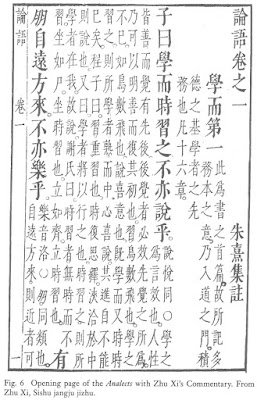 論語卷之一
朱熹集註
學而第一
此為書之首篇故所記多
務本之意乃入道之門積
德之基學者之先
務也凡十六章
子曰學而時習之不亦說乎
說悅同○學之
為言效也人性
皆善而覺有先後後覺者必效先覺之所為
乃可以明善而復其初也習鳥數飛也學之
不已如鳥數飛也說喜意也既學而又時時
習之則所學者熟而中心喜說其進自不能
已矣程子曰習重習也時復思繹浹洽於中
則說也又曰學者將以行之也時習之則所
學者在我故說謝氏曰時習者無時而不
習坐如尸坐時習也立如齊立時習也
有
朋自遠方來不亦樂乎
樂音洛○朋同類也
自遠方來則近者可
論語 卷一 一
Fig. 6 Opening page of the Analects with Zhu Xi's Commentary. From
Zhu Xi, Sishu jangju jizhu.